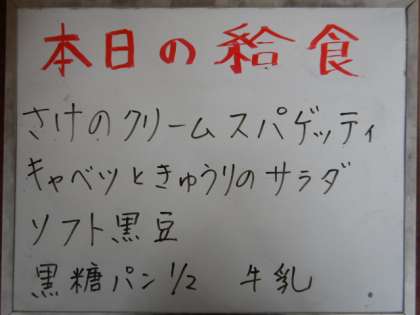 本日の給食
さけのクリームスパゲッティ
キャベツときゅうりのサラダ
ソフト黒豆
黒糖パン1/2 牛乳